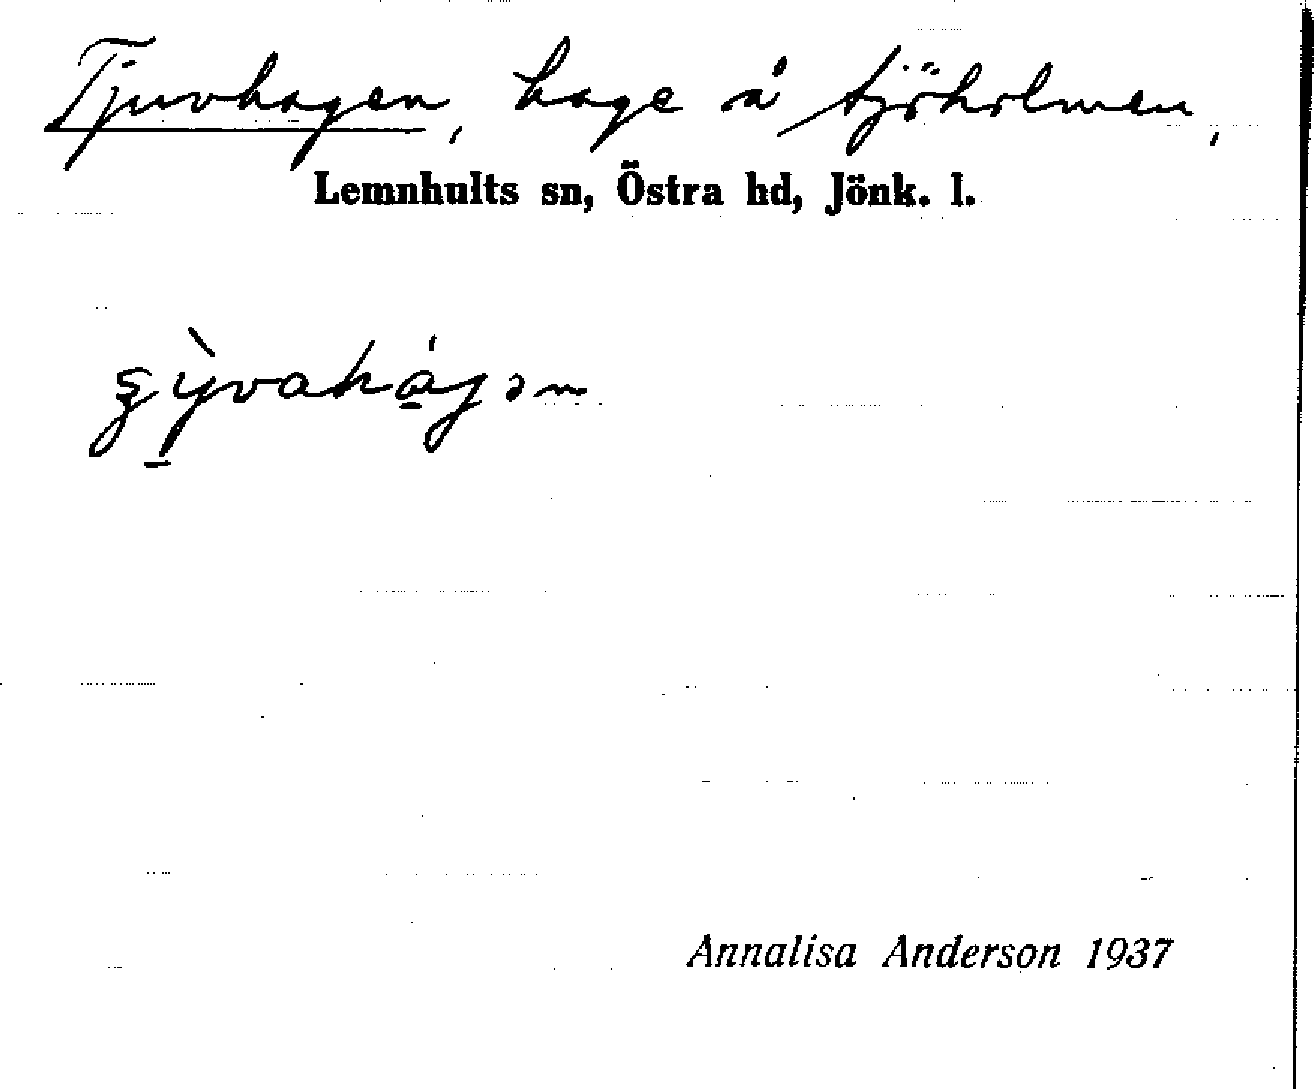 Tjuvhagen, hage å Sjöholmen,
Lemnhults sn, Östra hd, Jönk. l.
Annalisa Anderson 1937